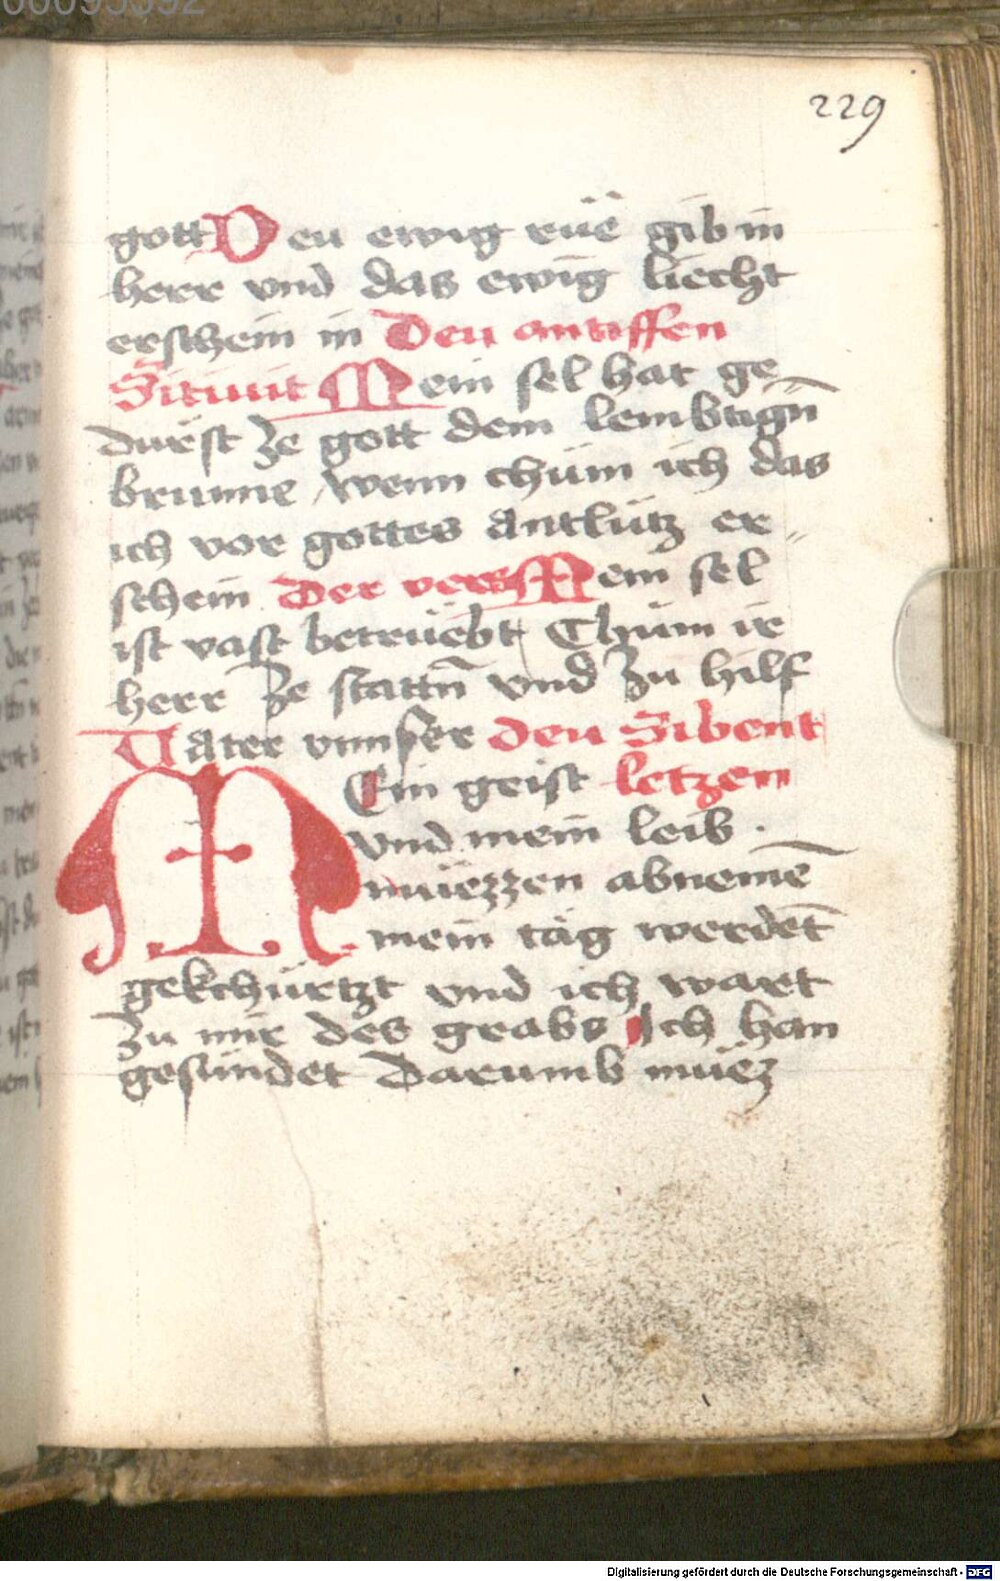 00095592
229
gott Den ewig rüe gib in
herr vnd das ewig liecht
erschein in Den antiffen
Sitiuit Mein sel hat ge
dürst ze gott dem lembtign̄
brunne wenn chüm ich das
ich vor gottes antlütz er-
schein Der vers Mein sel
ist vast betrüebt Chüm ir
herr ze stattn̄ vnd zu hilf
Vater vnnser den Sibent
MEin geist letzen
vnd mein leib .
müezzen abnemē
mein täg werdēt
gekchürtzt vnd ich wart
zu mir des grabs Ich han
gesündet Darumb müez
Digitalisierung gefördert durch die Deutsche Forschungsgemeinschaft - DFG